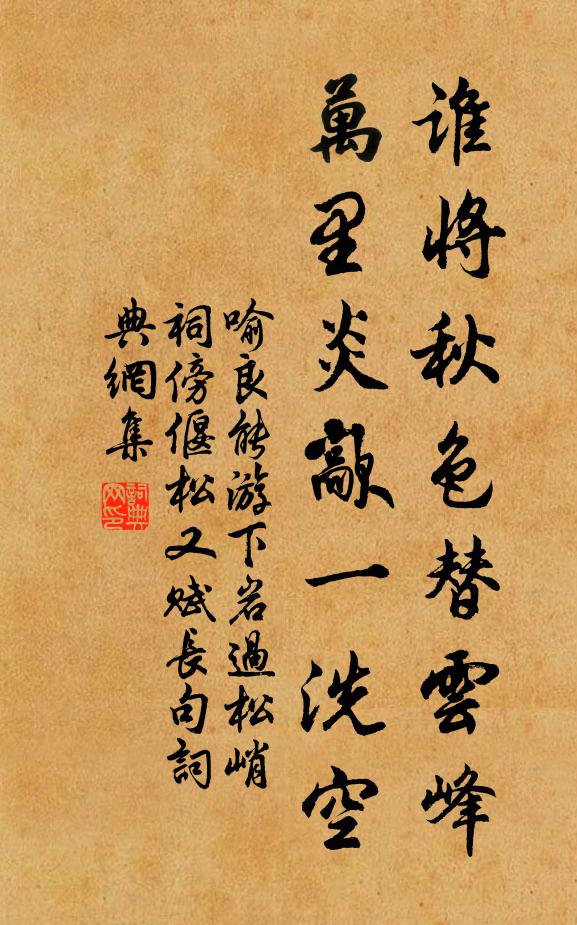 誰將秋色替雲峰
萬里炎歊一洗空
喻良能游下岩過松峭
祠傍偃松又賦長句詞
典網集
詞典網印